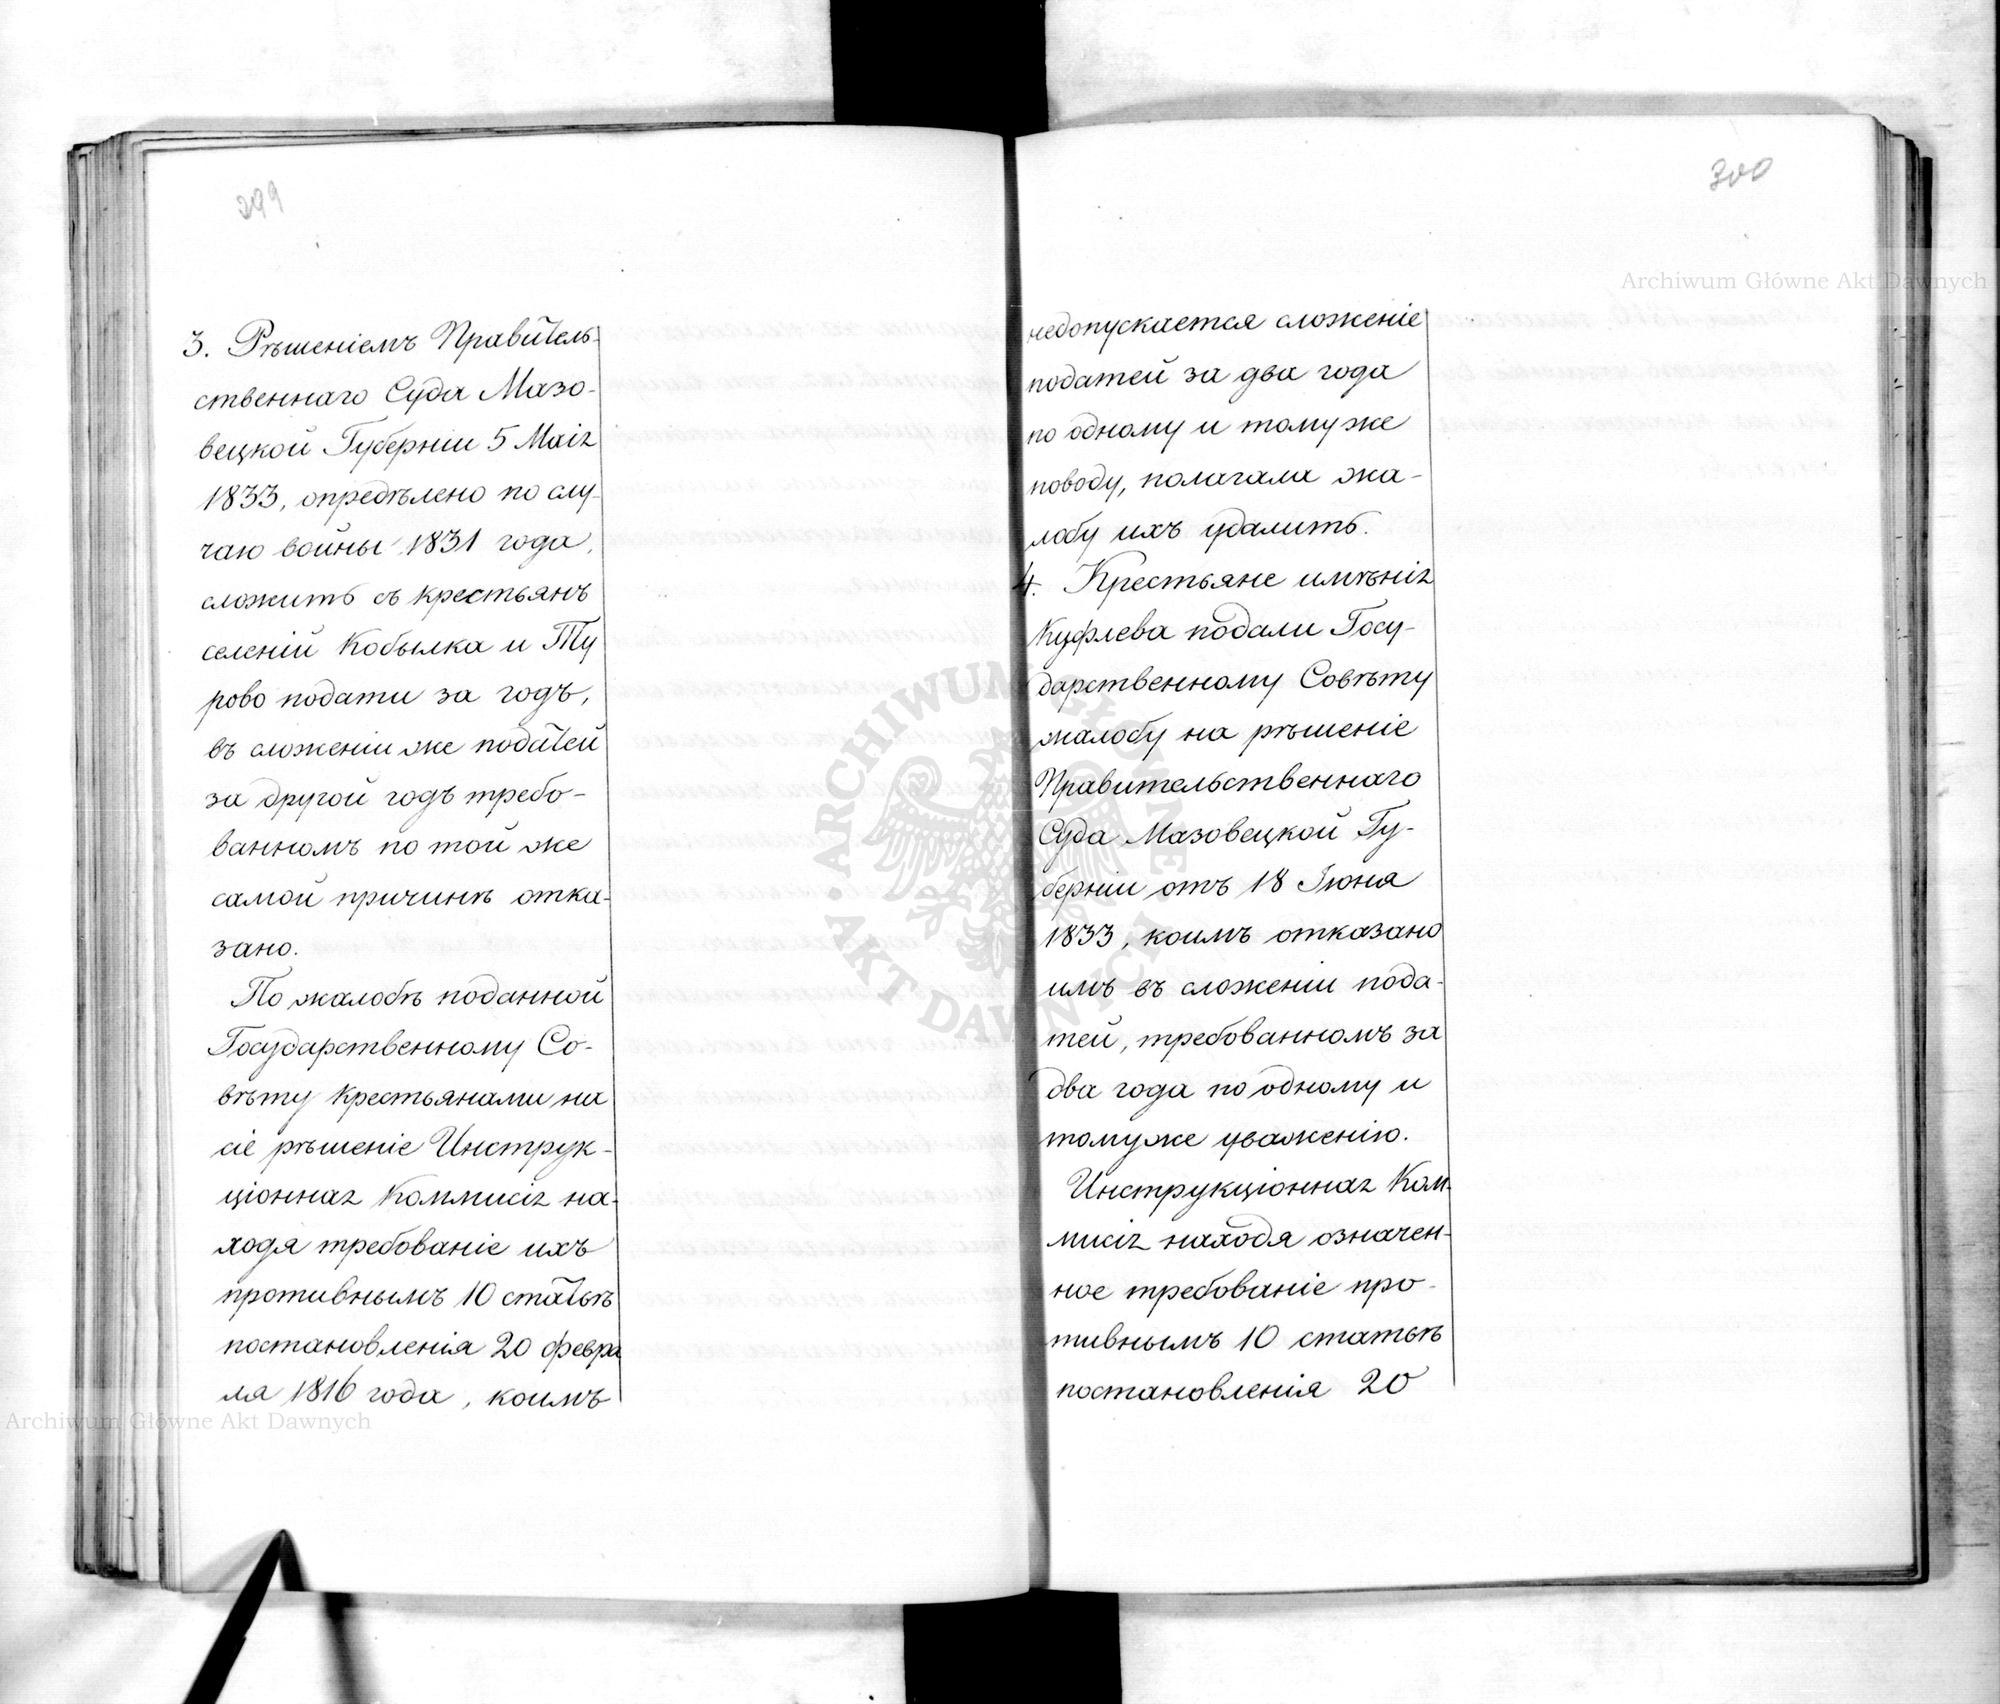 299
3. Рѣшеніемъ Правитель-
ственнаго Суда Мазо-
вецкой Губерніи 5 Маія
1833, опредѣлено по слу-
чаю войны 1831 года,
сложить съ крестьянъ
селеній Кобылка и Ту
рово подати за годъ,
въ сложеніи же податей
за другой годъ требо-
ванномъ по той же
самой причинѣ отка-
зано.
По жалобѣ поданной
Государственному Со-
вѣту крестьянами на
сіе рѣшеніе Инструк-
ціонная Коммисія на-
ходя требованіе ихъ
противнымъ 10 статьѣ
постановленія 20 февра
ля 1816 года, коимъ
300
недопускается сложеніе
податей за два года
по одному и томуже
поводу, полагала жа-
лобу ихъ удалить.
4. Крестьяне имѣнія
Куфлева подали Госу-
дарственному Совѣту
жалобу на рѣшеніе
Правительственнаго
Суда Мазовецкой Гу-
берніи отъ 18 Іюня
1833, коимъ отказано
имъ въ сложеніи пода-
тей, требованномъ за
два года по одному и
томуже уваженію.
Инструкціонная Ком-
мисія находя означен-
ное требованіе про-
тивнымъ 10 статьѣ
постановленія 20
Archiwum Główne Akt Dawnych
Archiwum Główne Akt Dawnych
ARCHIWUM GŁÓWNE AKT DAWNYCH